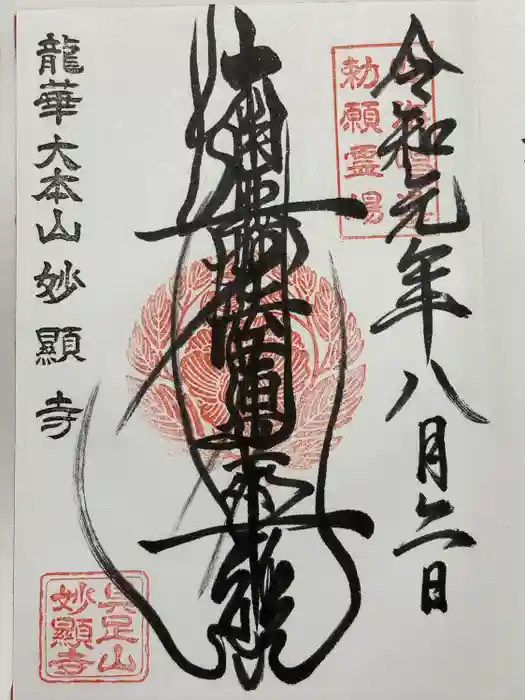 令和元年八月六日
四海唱導
勅願霊場
南無妙法蓮華経
龍華大本山妙顯寺
具足山
妙顯寺